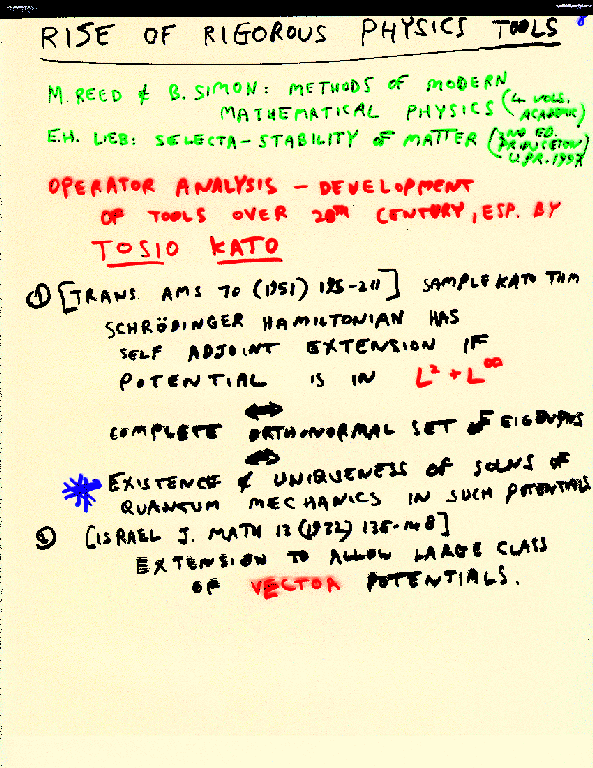 RISE OF RIGOROUS PHYSICS TOOLS
8
M. REED & B. SIMON: METHODS OF MODERN
MATHEMATICAL PHYSICS (4 VOLS. ACADEMIC)
E.H. LIEB: SELECTA-STABILITY OF MATTER (2ND ED. PRINCETON U.PR. 1997)
OPERATOR ANALYSIS - DEVELOPMENT
OF TOOLS OVER 20TH CENTURY, ESP. BY
TOSIO KATO
① [TRANS. AMS 70 (1951) 195-211] SAMPLE KATO THM
SCHRÖDINGER HAMILTONIAN HAS
SELF ADJOINT EXTENSION IF
POTENTIAL IS IN L² + L^∞
↔
COMPLETE ORTHONORMAL SET OF EIGENFNS
↔
* EXISTENCE & UNIQUENESS OF SOLNS OF
QUANTUM MECHANICS IN SUCH POTENTIALS
② [ISRAEL J. MATH 13 (1972) 135-148]
EXTENSION TO ALLOW LARGE CLASS
OF VECTOR POTENTIALS.